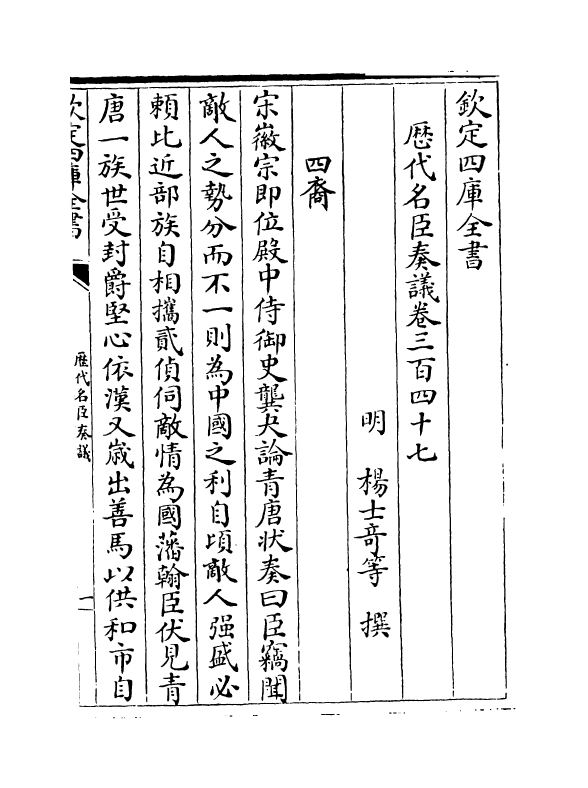 欽定四庫全書
歴代名臣奏議卷三百四十七
明 楊士竒等 撰
四裔
宋徽宗即位殿中侍御史龔夬論青唐狀奏曰臣竊聞
敵人之勢分而不一則為中國之利自頃敵人强盛必
頼比近部族自相攜貳偵伺敵情為國藩翰臣伏見青
唐一族世受封爵堅心依漢又嵗出善馬以供和市自
欽定四庫全書
歴代名臣奏議
一